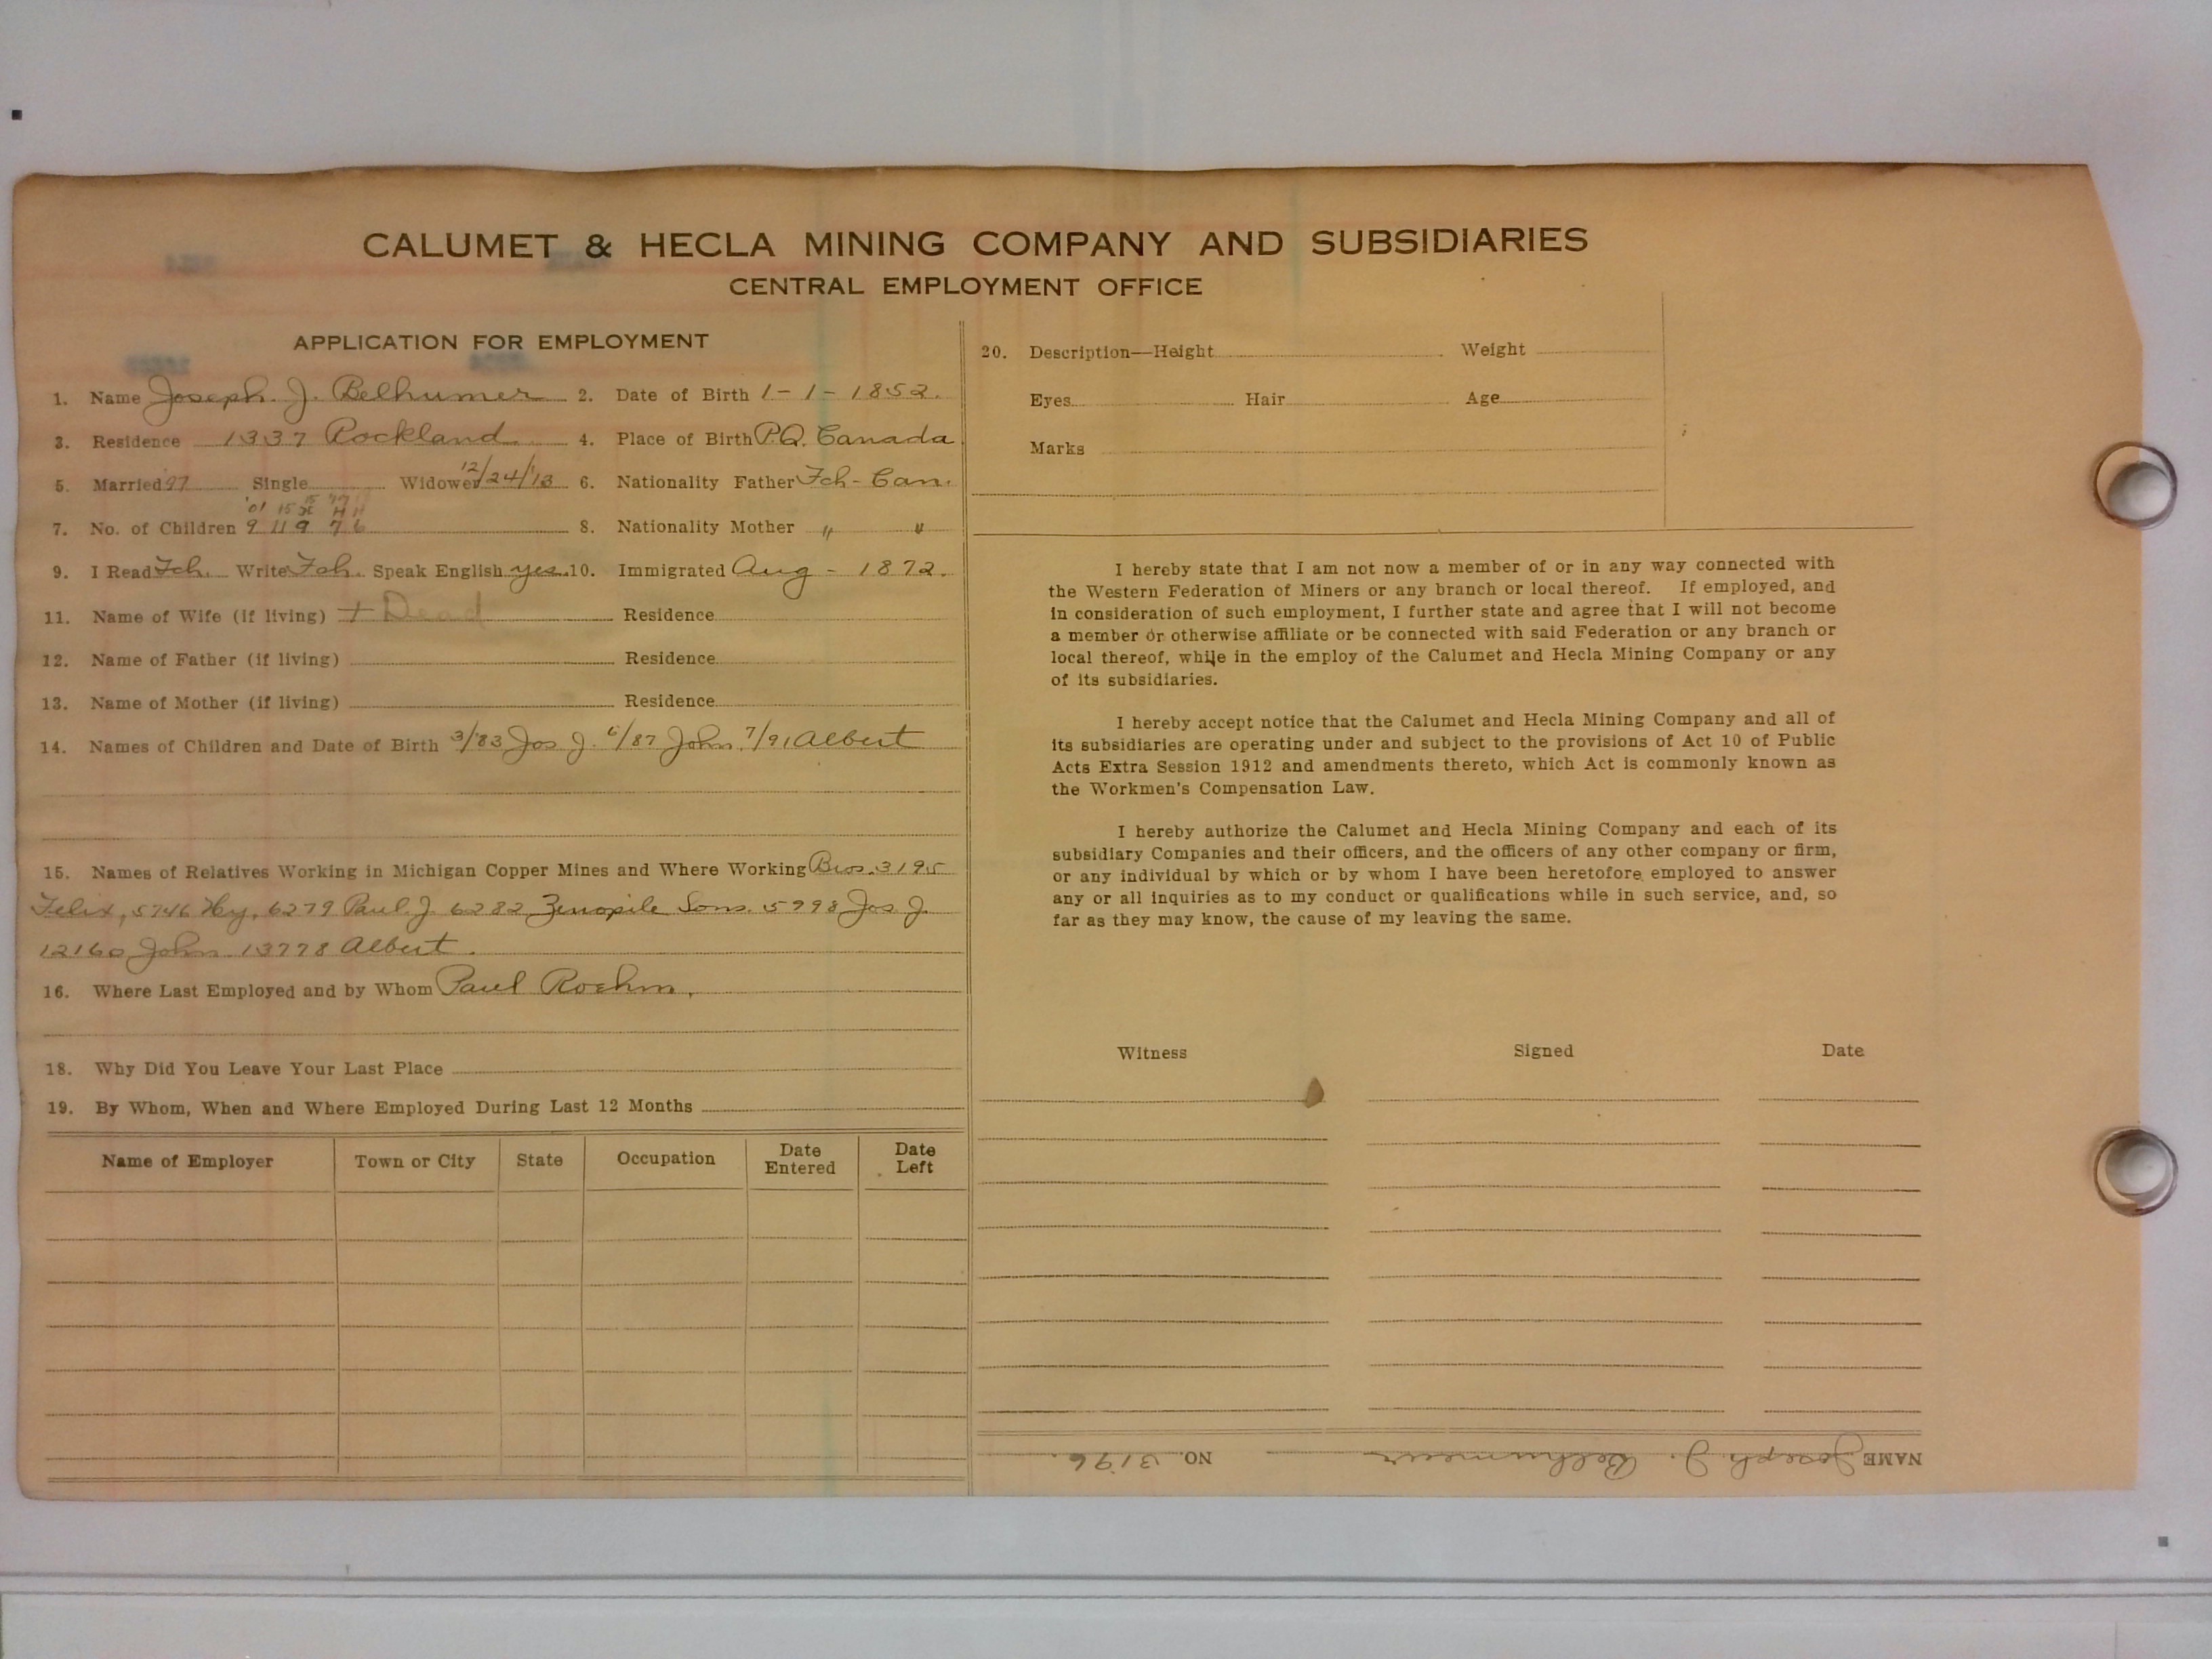 CALUMET & HECLA MINING COMPANY AND SUBSIDIARIES
CENTRAL EMPLOYMENT OFFICE
APPLICATION FOR EMPLOYMENT
1. Name Joseph. J. Belhumer 2. Date of Birth 1-1-1852.
3. Residence 1337 Rockland 4. Place of Birth P.Q. Canada
5. Married '97 Single Widower 12/24/'13 6. Nationality Father Fch-Can.
'01 15
7. No. of Children 9 11 9 7 6 8. Nationality Mother " "
9. I Read Fch. Write Fch. Speak English yes. 10. Immigrated Aug - 1872.
11. Name of Wife (if living) + Dead Residence
12. Name of Father (if living) Residence
13. Name of Mother (if living) Residence
14. Names of Children and Date of Birth 3/83 Jos J. 6/87 John, 7/91 Albert
15. Names of Relatives Working in Michigan Copper Mines and Where Working Bros. 3195
Felix, 5746 Hy, 6279 Paul. J. 6282 Zenopile Sons. 5998 Jos J.
12160 John 13778 Albert.
16. Where Last Employed and by Whom Paul Roehm.
18. Why Did You Leave Your Last Place
19. By Whom, When and Where Employed During Last 12 Months
Name of Employer Town or City State Occupation Date Entered Date Left
20. Description—Height Weight
Eyes Hair Age
Marks
I hereby state that I am not now a member of or in any way connected with
the Western Federation of Miners or any branch or local thereof. If employed, and
in consideration of such employment, I further state and agree that I will not become
a member or otherwise affiliate or be connected with said Federation or any branch or
local thereof, while in the employ of the Calumet and Hecla Mining Company or any
of its subsidiaries.
I hereby accept notice that the Calumet and Hecla Mining Company and all of
its subsidiaries are operating under and subject to the provisions of Act 10 of Public
Acts Extra Session 1912 and amendments thereto, which Act is commonly known as
the Workmen's Compensation Law.
I hereby authorize the Calumet and Hecla Mining Company and each of its
subsidiary Companies and their officers, and the officers of any other company or firm,
or any individual by which or by whom I have been heretofore employed to answer
any or all inquiries as to my conduct or qualifications while in such service, and, so
far as they may know, the cause of my leaving the same.
Witness Signed Date
NAME Joseph. J. Belhumeur NO. 3196.